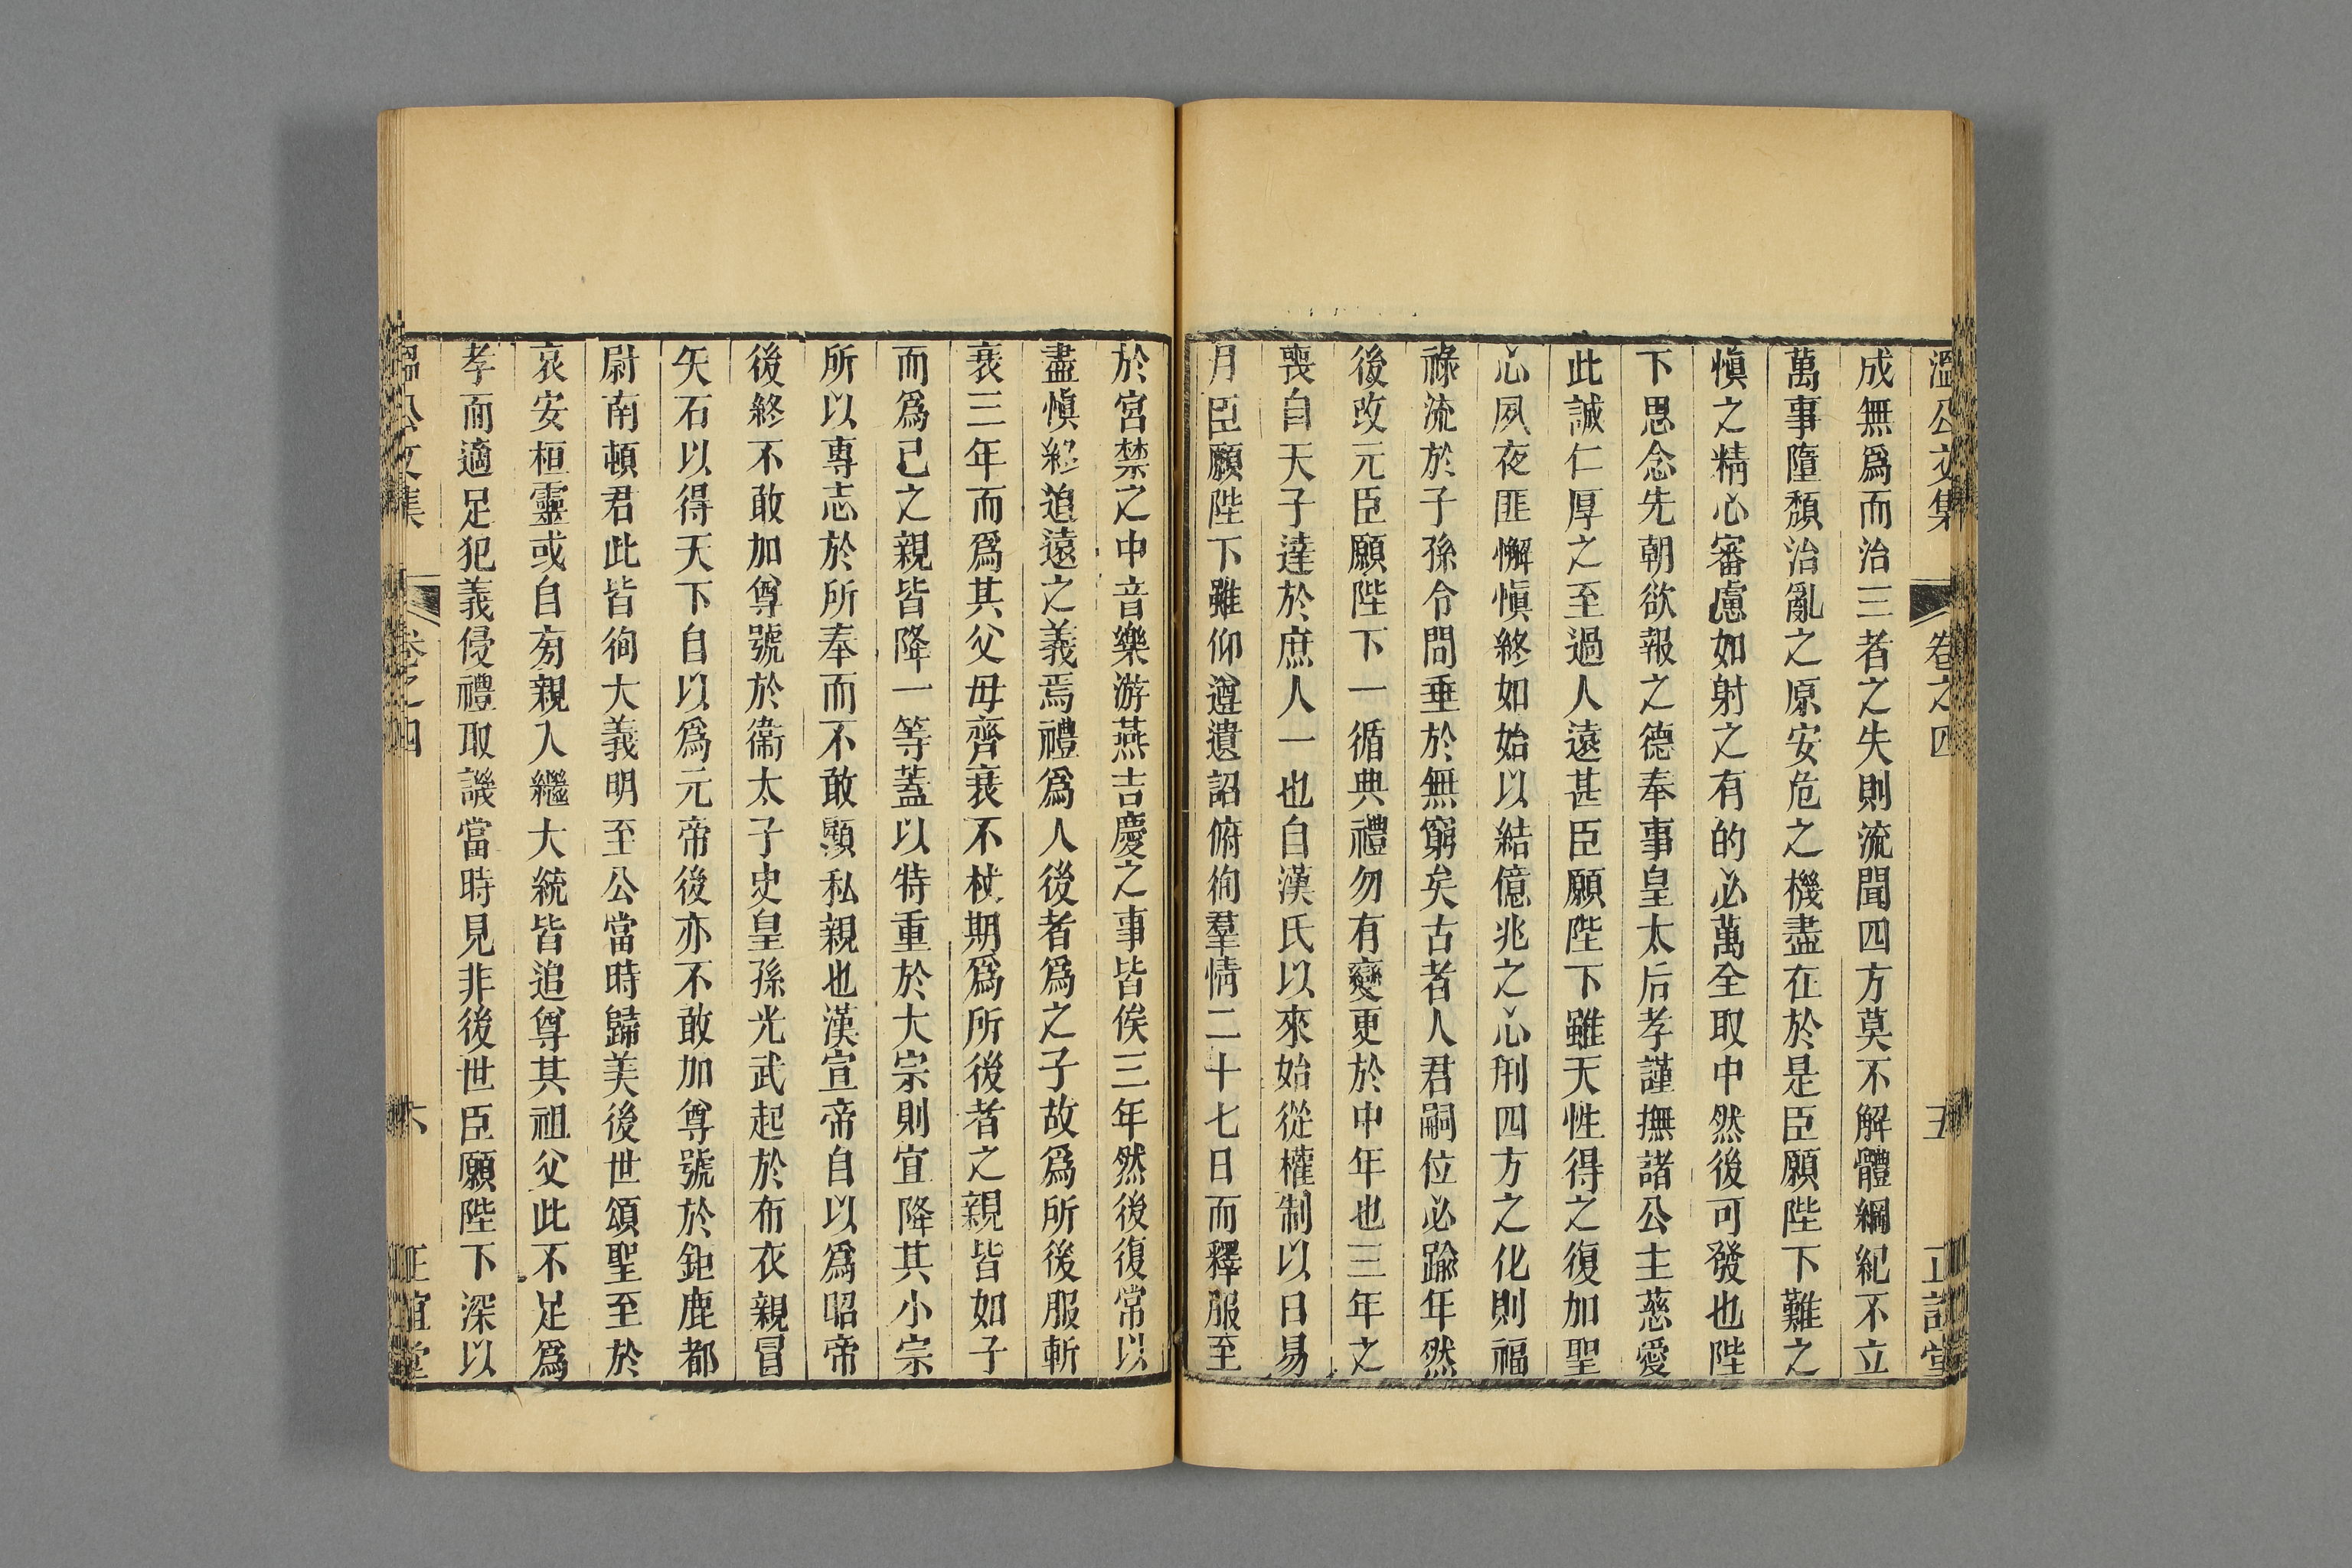 溫公文集 卷之四 五 正誼堂
成無爲而治三者之失則流聞四方莫不解體綱紀不立
萬事隳頹治亂之原安危之機盡在於是臣願陛下難之
愼之精心審慮如射之有的必萬全取中然後可發也陛
下思念先朝欲報之德奉事皇太后孝謹撫諸公主慈愛
此誠仁厚之至過人遠甚臣願陛下雖天性得之復加聖
心夙夜匪懈愼終如始以結億兆之心刑四方之化則福
祿流於子孫令問垂於無窮矣古者人君嗣位必踰年然
後改元臣願陛下一循典禮勿有變更於中年也三年之
喪自天子達於庶人一也自漢氏以來始從權制以日易
月臣願陛下雖仰遵遺詔俯徇羣情二十七日而釋服至
於宮禁之中音樂游燕吉慶之事皆俟三年然後復常以
盡愼終追遠之義焉禮爲人後者爲之子故爲所後服斬
衰三年而爲其父母齊衰不杖期爲所後者之親皆如子
而爲己之親皆降一等蓋以特重於大宗則宜降其小宗
所以專志於所奉而不敢顧私親也漢宣帝自以爲昭帝
後終不敢加尊號於衞太子史皇孫光武起於布衣親冒
矢石以得天下自以爲元帝後亦不敢加尊號於鉅鹿都
尉南頓君此皆徇大義明至公當時歸美後世頌聖至於
哀安桓靈或自旁親入繼大統皆追尊其祖父此不足爲
孝而適足犯義侵禮取譏當時見非後世臣願陛下深以
溫公文集 卷之四 六 正誼堂